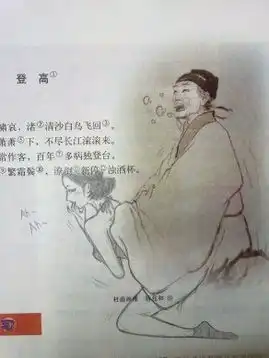 登 高①
啸哀，渚②清沙白鸟飞回③。
萧下，不尽长江滚滚来。
常作客，百年⑦多病独登台。
繁霜鬓，潦倒新停浊酒杯。
Ah~
Ah~
杜甫画像 蒋兆和 绘